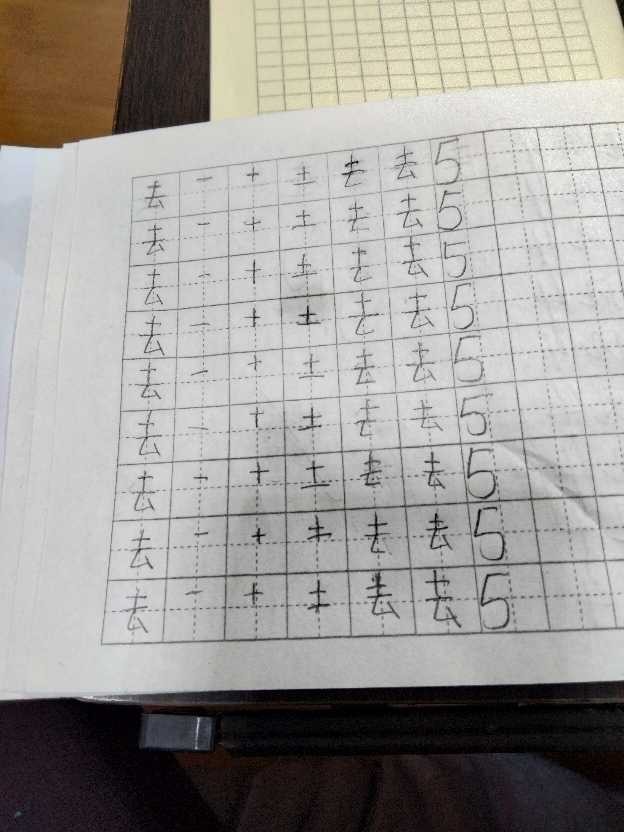 去 一 十 土 去 去 5
去 一 十 土 去 去 5
去 一 十 土 去 去 5
去 一 十 土 去 去 5
去 一 十 土 去 去 5
去 一 十 土 去 去 5
去 一 十 土 去 去 5
去 一 十 土 去 去 5
去 一 十 土 去 去 5